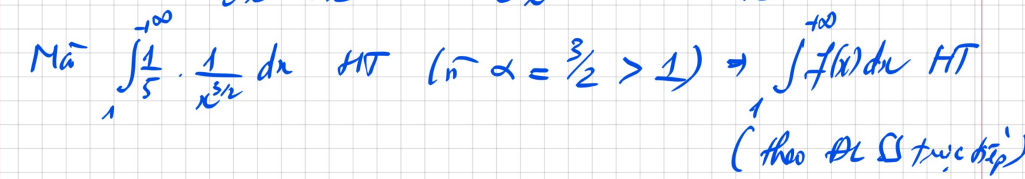 Mà ∫₁^{+∞} 1/5 · 1/x^{3/2} dx HT (vì α = 3/2 > 1) ⇒ ∫₁^{+∞} f(x) dx HT
(theo ĐL SS trực tiếp)